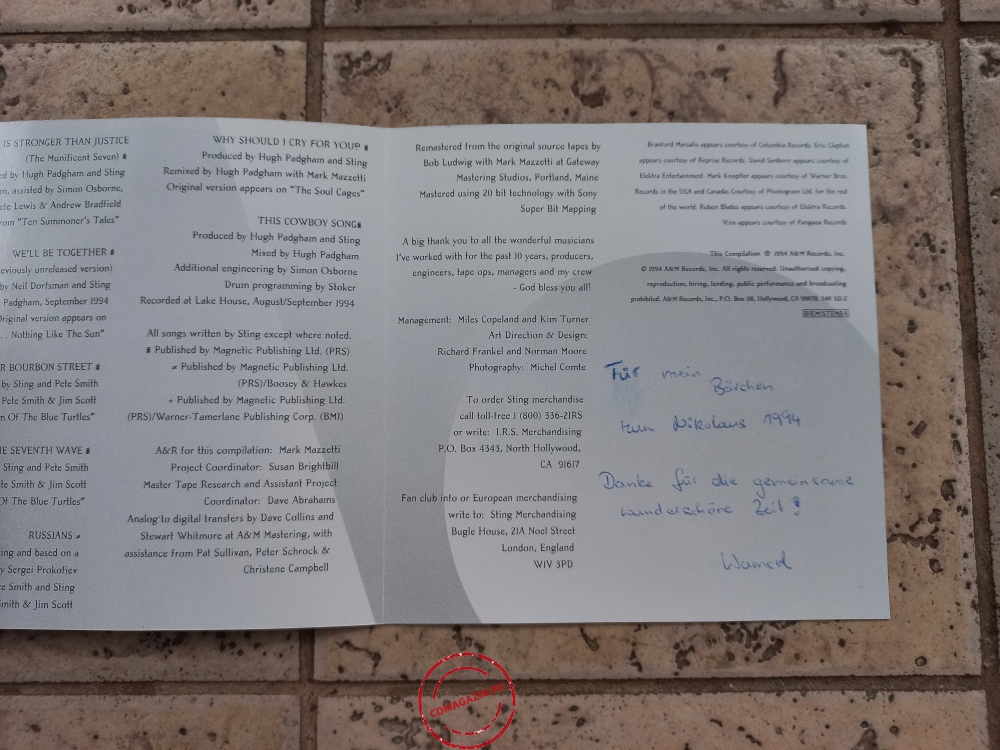 IS STRONGER THAN JUSTICE
(The Munificent Seven)
ed by Hugh Padgham and Sting
m, assisted by Simon Osborne,
ete Lewis & Andrew Bradfield
rom "Ten Summoner's Tales"
WE'LL BE TOGETHER
eviously unreleased version)
by Neil Dorfsman and Sting
Padgham, September 1994
riginal version appears on
. . Nothing Like The Sun"
R BOURBON STREET
by Sting and Pete Smith
Pete Smith & Jim Scott
n Of The Blue Turtles"
HE SEVENTH WAVE
Sting and Pete Smith
te Smith & Jim Scott
Of The Blue Turtles"
RUSSIANS
ing and based on a
y Sergei Prokofiev
te Smith and Sting
Smith & Jim Scott
WHY SHOULD I CRY FOR YOU?
Produced by Hugh Padgham and Sting
Remixed by Hugh Padgham with Mark Mazzetti
Original version appears on "The Soul Cages"
THIS COWBOY SONG
Produced by Hugh Padgham and Sting
Mixed by Hugh Padgham
Additional engineering by Simon Osborne
Drum programming by Stoker
Recorded at Lake House, August/September 1994
All songs written by Sting except where noted.
Published by Magnetic Publishing Ltd. (PRS)
Published by Magnetic Publishing Ltd.
(PRS)/Boosey & Hawkes
Published by Magnetic Publishing Ltd.
(PRS)/Warner-Tamerlane Publishing Corp. (BMI)
A&R for this compilation: Mark Mazzetti
Project Coordinator: Susan Brightbill
Master Tape Research and Assistant Project
Coordinator: Dave Abrahams
Analog to digital transfers by Dave Collins and
Stewart Whitmore at A&M Mastering, with
assistance from Pat Sullivan, Peter Schrock &
Christene Campbell
Remastered from the original source tapes by
Bob Ludwig with Mark Mazzetti at Gateway
Mastering Studios, Portland, Maine
Mastered using 20 bit technology with Sony
Super Bit Mapping
A big thank you to all the wonderful musicians
I've worked with for the past 10 years, producers,
engineers, tape ops, managers and my crew
- God bless you all!
Management: Miles Copeland and Kim Turner
Art Direction & Design:
Richard Frankel and Norman Moore
Photography: Michel Comte
To order Sting merchandise
call toll-free 1 (800) 336-21RS
or write: I.R.S. Merchandising
P.O. Box 4343, North Hollywood,
CA 91617
Fan club info or European merchandising
write to: Sting Merchandising
Bugle House, 21A Noel Street
London, England
W1V 3PD
Branford Marsalis appears courtesy of Columbia Records. Eric Clapton
appears courtesy of Reprise Records. David Sanborn appears courtesy of
Elektra Entertainment. Mark Knopfler appears courtesy of Warner Bros.
Records in the USA and Canada: Courtesy of Phonogram Ltd. for the rest
of the world. Ruben Blades appears courtesy of Elektra Records.
Vinx appears courtesy of Pangaea Records
This Compilation ℗ 1994 A&M Records, Inc.
© 1994 A&M Records, Inc. All rights reserved. Unauthorised copying,
reproduction, hiring, lending, public performance and broadcasting
prohibited. A&M Records, Inc., P.O. Box 118, Hollywood, CA 90078. 540 321-2
BIEM/STEMRA
Für mein
Bärchen
zum Nikolaus 1994
Danke für die gemeinsame
wunderschöne Zeit!
CDMAGAZIN.RU